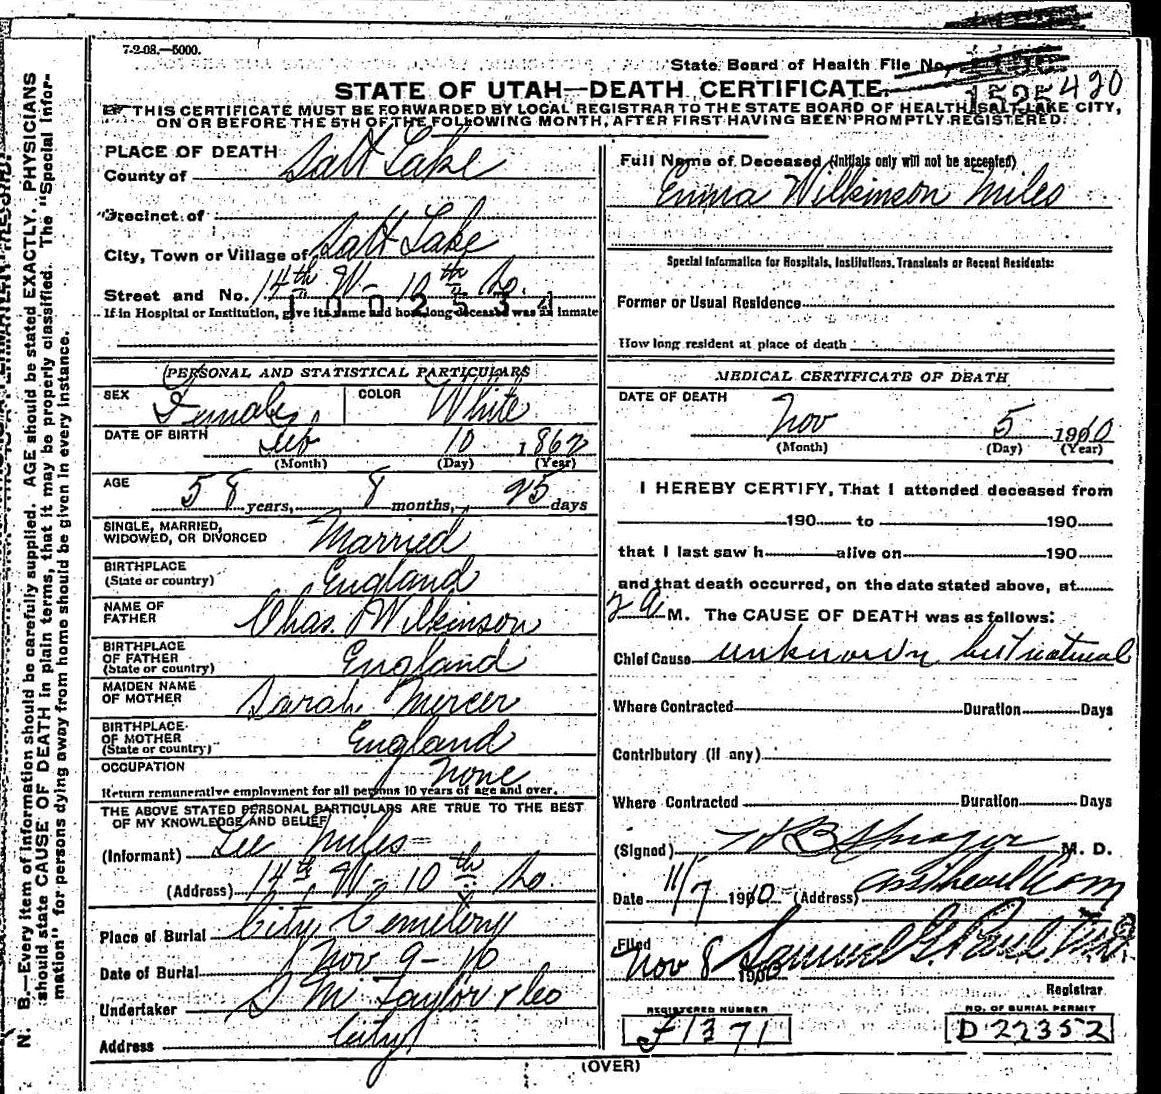 7-2-08.—5000.
State Board of Health File No.
1525 420
STATE OF UTAH—DEATH CERTIFICATE.
THIS CERTIFICATE MUST BE FORWARDED BY LOCAL REGISTRAR TO THE STATE BOARD OF HEALTH, SALT LAKE CITY,
ON OR BEFORE THE 5TH OF THE FOLLOWING MONTH, AFTER FIRST HAVING BEEN PROMPTLY REGISTERED.
N. B.—Every item of information should be carefully supplied. AGE should be stated EXACTLY. PHYSICIANS
should state CAUSE OF DEATH in plain terms, that it may be properly classified. The "Special Infor-
mation" for persons dying away from home should be given in every instance.
PLACE OF DEATH
County of Salt Lake
Precinct of
City, Town or Village of Salt Lake
Street and No. 14th W- 10th So.
1002534
If in Hospital or Institution, give its name and how long deceased was an inmate
PERSONAL AND STATISTICAL PARTICULARS
SEX Female COLOR White
DATE OF BIRTH Feb 10 1862
(Month) (Day) (Year)
AGE 58 years, 8 months, 25 days
SINGLE, MARRIED,
WIDOWED, OR DIVORCED Married
BIRTHPLACE
(State or country) England
NAME OF
FATHER Chas. Wilkinson
BIRTHPLACE
OF FATHER
(State or country) England
MAIDEN NAME
OF MOTHER Sarah Mercer
BIRTHPLACE
OF MOTHER
(State or country) England
OCCUPATION None
Return remunerative employment for all persons 10 years of age and over.
THE ABOVE STATED PERSONAL PARTICULARS ARE TRUE TO THE BEST
OF MY KNOWLEDGE AND BELIEF
(Informant) Lee Miles
(Address) 14th W- 10th So.
Place of Burial City Cemetery
Date of Burial Nov 9-10
Undertaker S M Taylor & Co
Address City
Full Name of Deceased (Initials only will not be accepted)
Emma Wilkinson Miles
Special Information for Hospitals, Institutions, Transients or Recent Residents:
Former or Usual Residence
How long resident at place of death
MEDICAL CERTIFICATE OF DEATH
DATE OF DEATH
Nov 5 1910
(Month) (Day) (Year)
I HEREBY CERTIFY, That I attended deceased from
190 to 190
that I last saw h alive on 190
and that death occurred, on the date stated above, at
2 A M. The CAUSE OF DEATH was as follows:
Chief Cause unknown but natural
Where Contracted Duration Days
Contributory (if any)
Where Contracted Duration Days
(Signed) M. D.
Date 11/7 1910 (Address)
Filed
Nov 8 190 Samuel G. Paul M.D.
Registrar
REGISTERED NUMBER
J 1371
NO. OF BURIAL PERMIT
D 22352
(OVER)